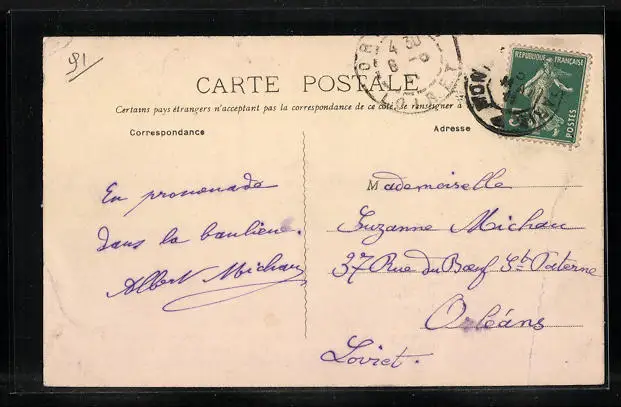 91
CARTE POSTALE
Certains pays étrangers n'acceptant pas la correspondance de ce côté, se renseigner à
Correspondance
Adresse
RÉPUBLIQUE FRANÇAISE
POSTES
4 30
LOIRET
En promenade
dans la banlieue.
Albert Michau
Mademoiselle
Suzanne Michau
37 Rue du Bœuf St Paterne
Orléans
Loiret.